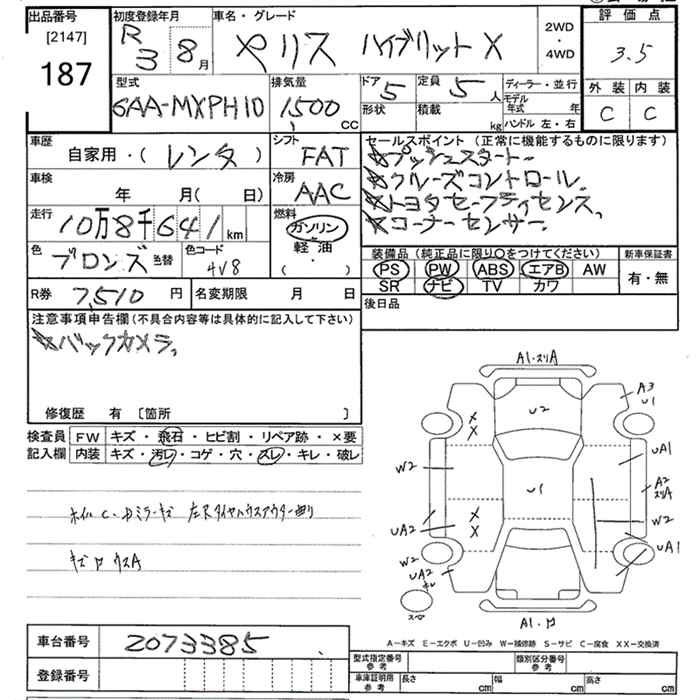 出品番号
[2147]
187
初度登録年月
R3 8月
車名・グレード
ヤリス ハイブリット X
2WD・4WD
評価点
3.5
外装 内装
C C
型式
6AA-MXPH10
排気量
1500 CC
ドア 5
形状
定員 5人
積載 kg
ディーラー・並行
モデル年式 年
ハンドル 左・右
車歴
自家用・(レンタ)
シフト
FAT
車検
年 月(日)
冷房
AAC
走行
10万8千641km
燃料
ガソリン
軽油
( )
色
ブロンズ 色替
色コード
4V8
R券 7,510円
名変期限 月 日
セールスポイント(正常に機能するものに限ります)
★プッシュスタート
★クルーズコントロール
★トヨタセーフティセンス
★コーナーセンサー
装備品(純正品に限り○をつけてください)
PS PW ABS エアB AW
SR ナビ TV カワ
新車保証書
有・無
後日品
注意事項申告欄(不具合内容等は具体的に記入して下さい)
★バックカメラ
修復歴 有 [箇所 ]
検査員記入欄
FW キズ・飛石・ヒビ割・リペア跡・×要
内装 キズ・汚レ・コゲ・穴・スレ・キレ・破レ
キズ ワ ウスA
A1・スリA
A3
U1
U2
UA1
W2
A2
スリA
U1
W2
UA2
W2
UA1
UA2
スペア
A-キズ E-エクボ U-凹み W-補修跡 S-サビ C-腐食 XX-交換済
車台番号 2073385
登録番号
型式指定番号 参考
類別区分番号 参考
車庫証明用 参考 長さ cm 幅 cm 高さ cm